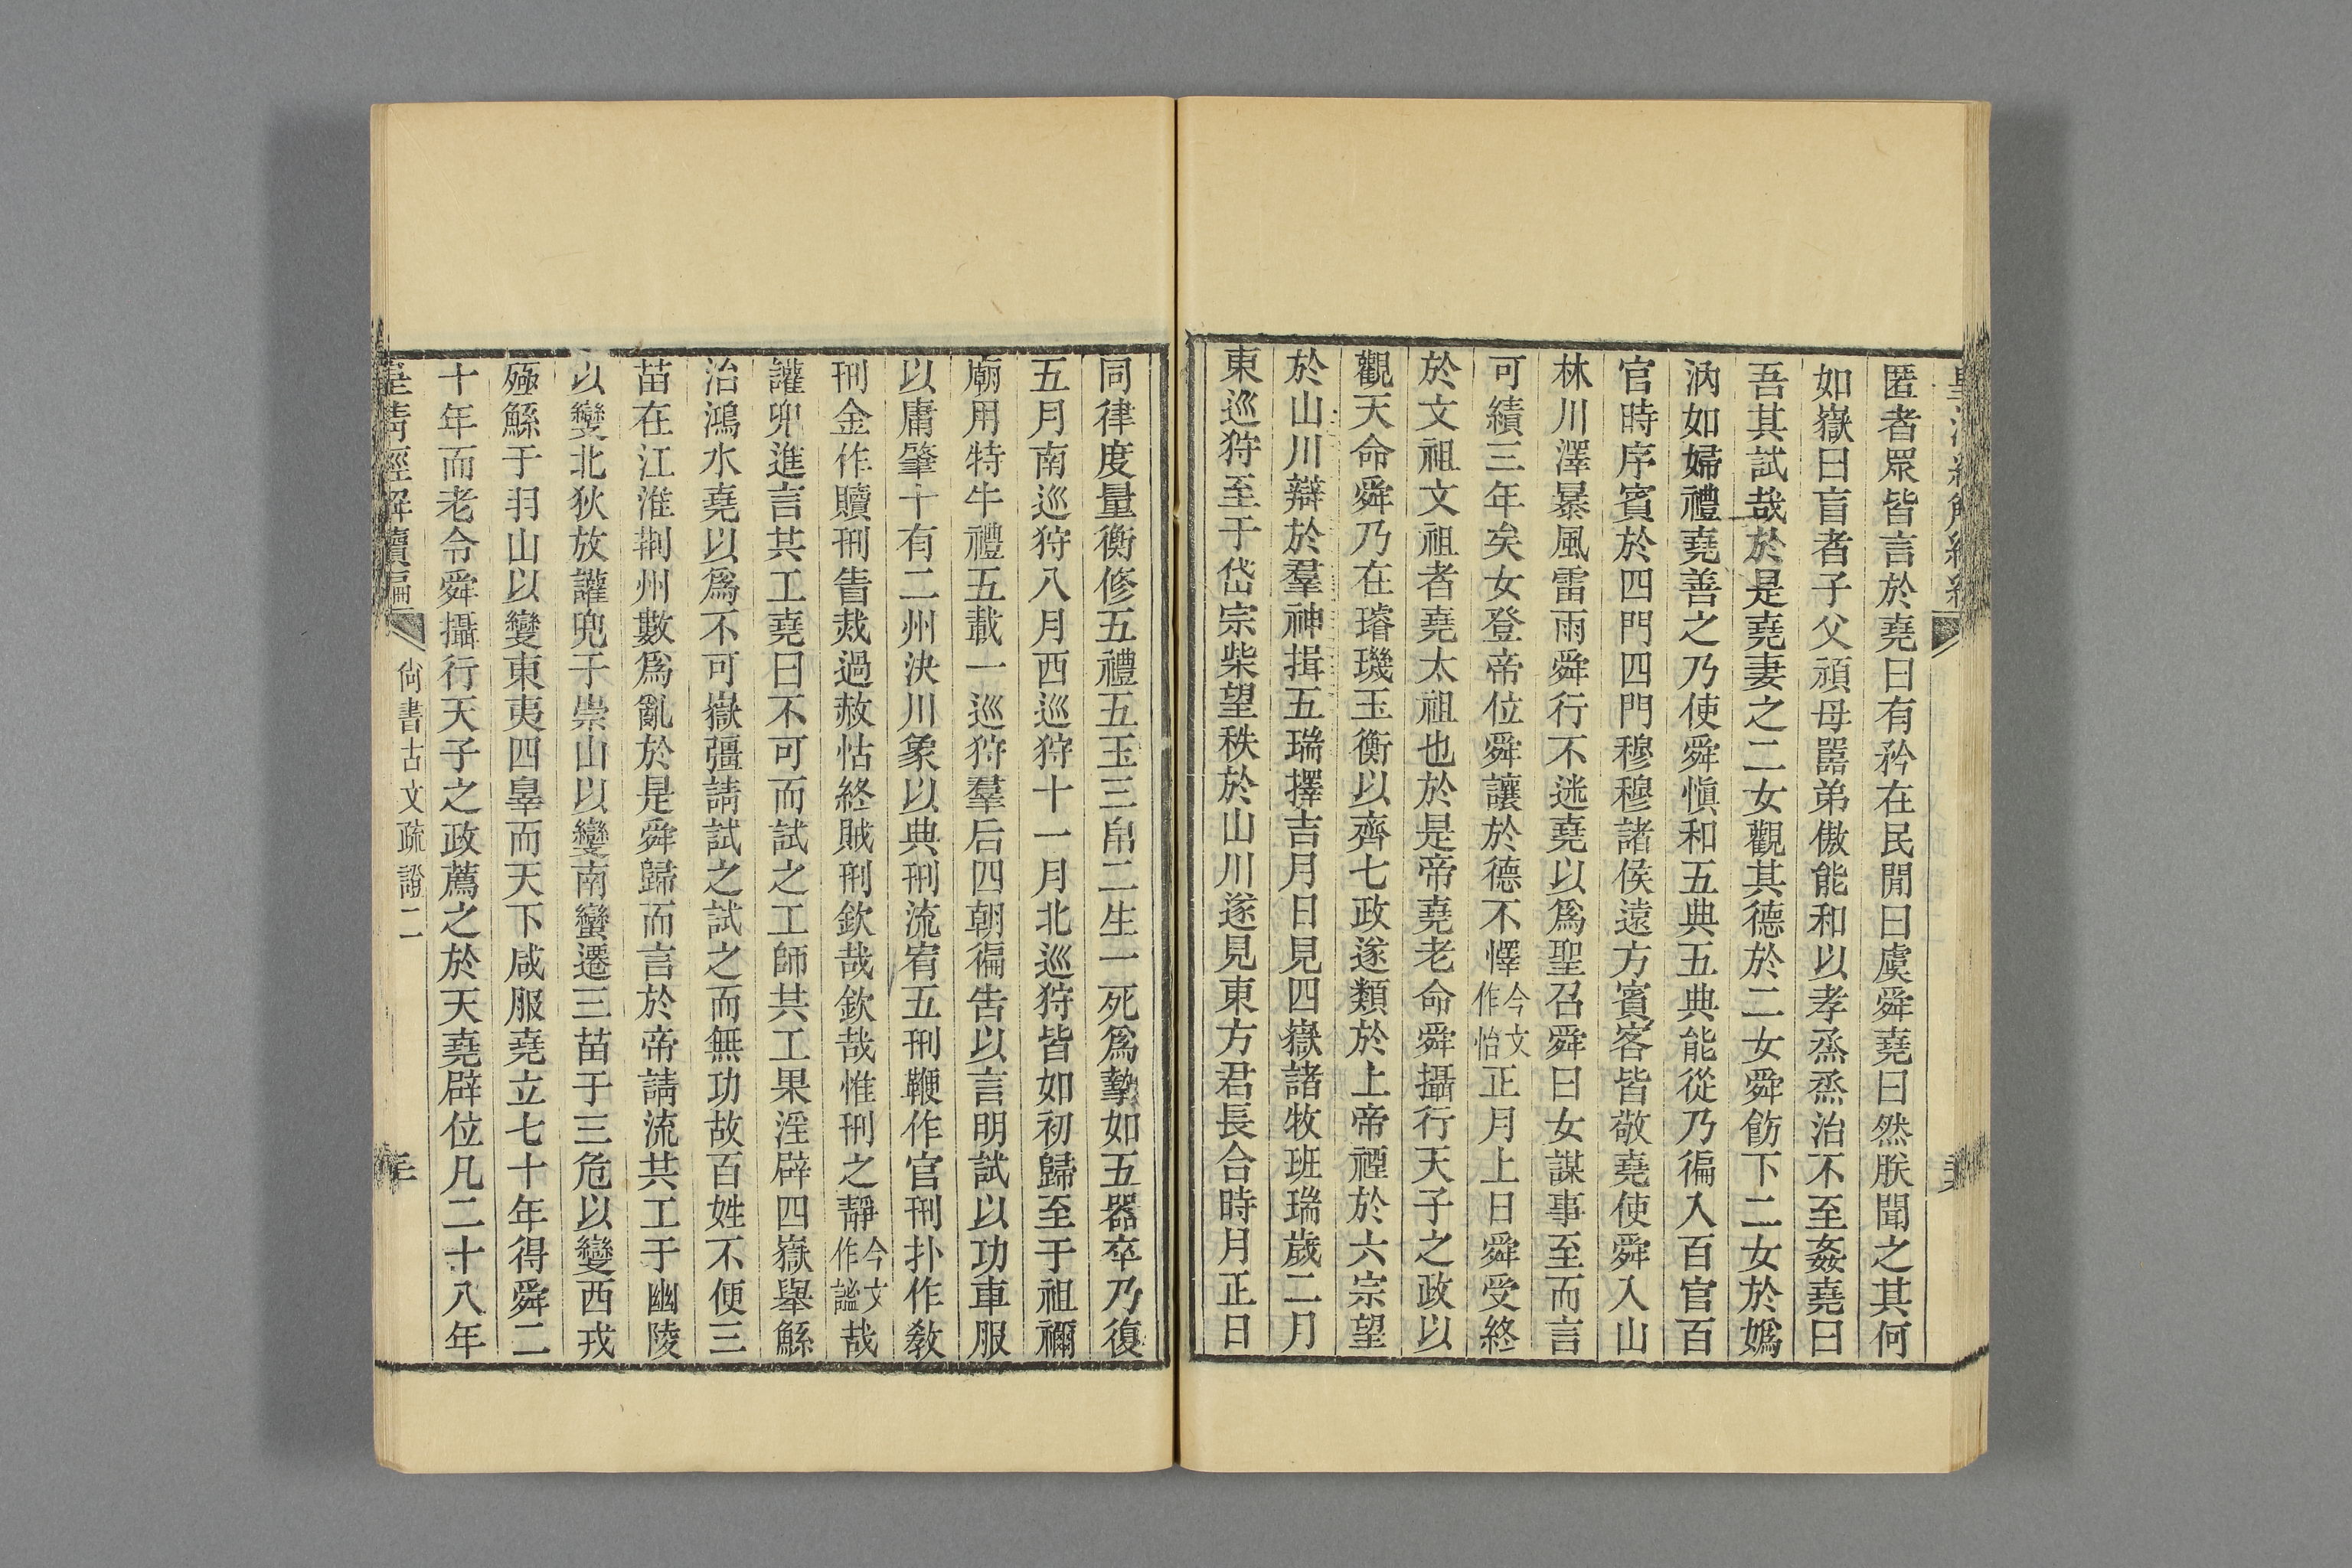 匿者眾皆言於堯曰有矜在民閒曰虞舜堯曰然朕聞之其何
如嶽曰盲者子父頑母嚚弟傲能和以孝烝烝治不至姦堯曰
吾其試哉於是堯妻之二女觀其德於二女舜飭下二女於嬀
汭如婦禮堯善之乃使舜愼和五典五典能從乃徧入百官百
官時序賓於四門四門穆穆諸侯遠方賓客皆敬堯使舜入山
林川澤暴風雷雨舜行不迷堯以爲聖召舜曰女謀事至而言
可績三年矣女登帝位舜讓於德不懌今文作怡正月上日舜受終
於文祖文祖者堯太祖也於是帝堯老命舜攝行天子之政以
觀天命舜乃在璿璣玉衡以齊七政遂類於上帝禋於六宗望
於山川辯於羣神揖五瑞擇吉月日見四嶽諸牧班瑞歲二月
東巡狩至于岱宗柴望秩於山川遂見東方君長合時月正日
同律度量衡修五禮五玉三帛二生一死爲摯如五器卒乃復
五月南巡狩八月西巡狩十一月北巡狩皆如初歸至于祖禰
廟用特牛禮五載一巡狩羣后四朝徧告以言明試以功車服
以庸肇十有二州決川象以典刑流宥五刑鞭作官刑扑作教
刑金作贖刑眚烖過赦怙終賊刑欽哉欽哉惟刑之靜今文作謐哉
讙兜進言共工堯曰不可而試之工師共工果淫辟四嶽舉鯀
治鴻水堯以爲不可嶽彊請試之試之而無功故百姓不便三
苗在江淮荆州數爲亂於是舜歸而言於帝請流共工于幽陵
以變北狄放讙兜于崇山以變南蠻遷三苗于三危以變西戎
殛鯀于羽山以變東夷四辠而天下咸服堯立七十年得舜二
十年而老令舜攝行天子之政薦之於天堯辟位凡二十八年
皇淸經解續編 尙書古文疏證二